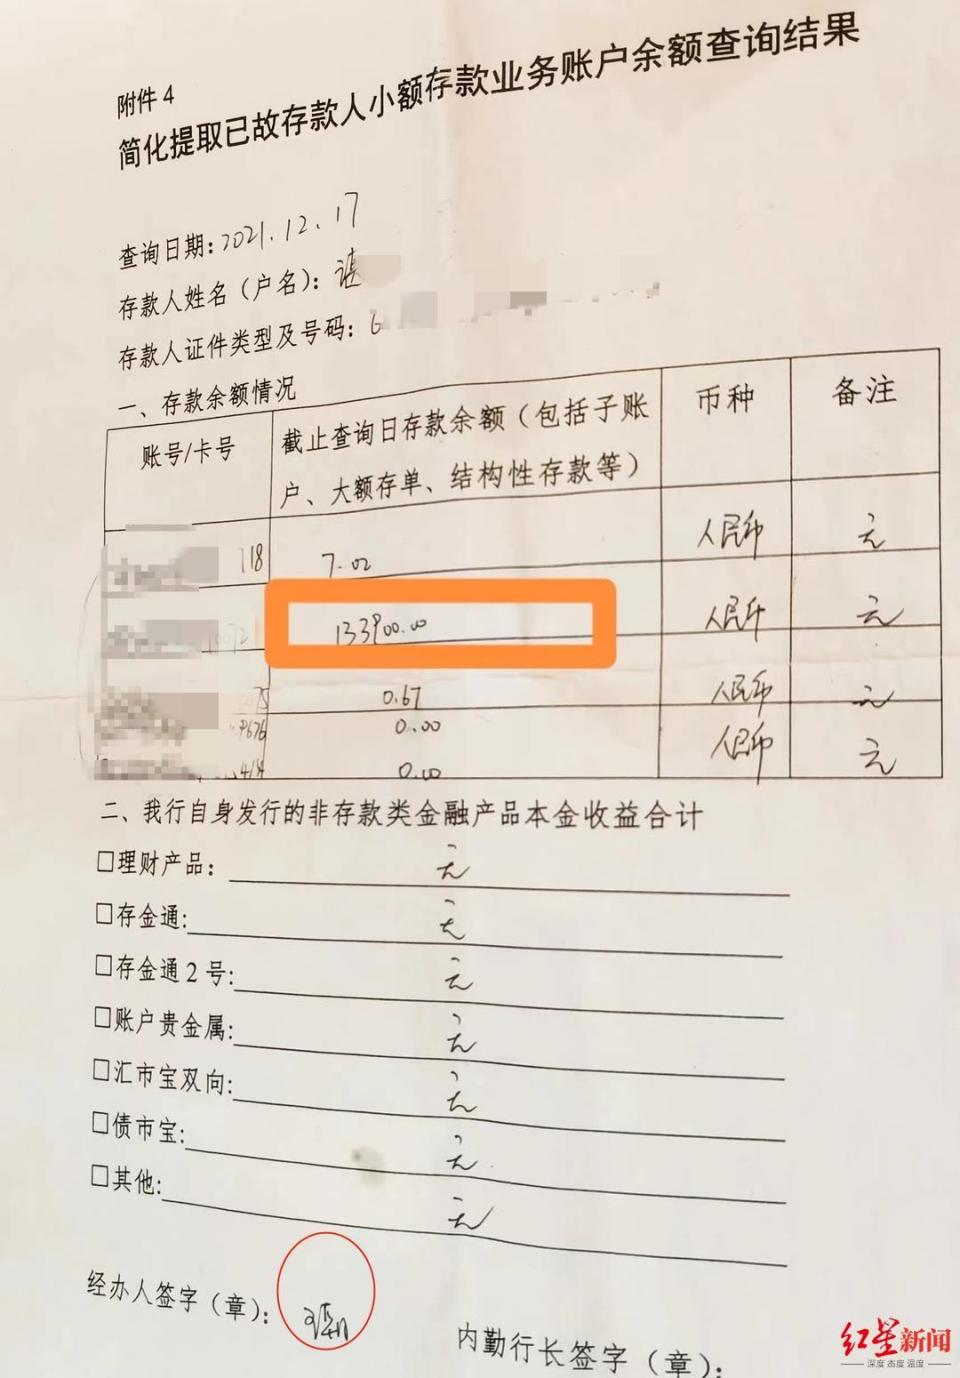 附件4
简化提取已故存款人小额存款业务账户余额查询结果
查询日期:2021.12.17
存款人姓名(户名):谌
存款人证件类型及号码:6
一、存款余额情况
账号/卡号 截止查询日存款余额(包括子账户、大额存单、结构性存款等) 币种 备注
118 7.02 人民币 无
133900.00 人民币 无
75 0.67 人民币 无
9676 0.00 人民币 无
414 0.00
二、我行自身发行的非存款类金融产品本金收益合计
□理财产品: 无
□存金通: 无
□存金通2号: 无
□账户贵金属: 无
□汇市宝双向: 无
□债市宝: 无
□其他: 无
经办人签字(章):
内勤行长签字(章):
红星新闻
深度 态度 温度